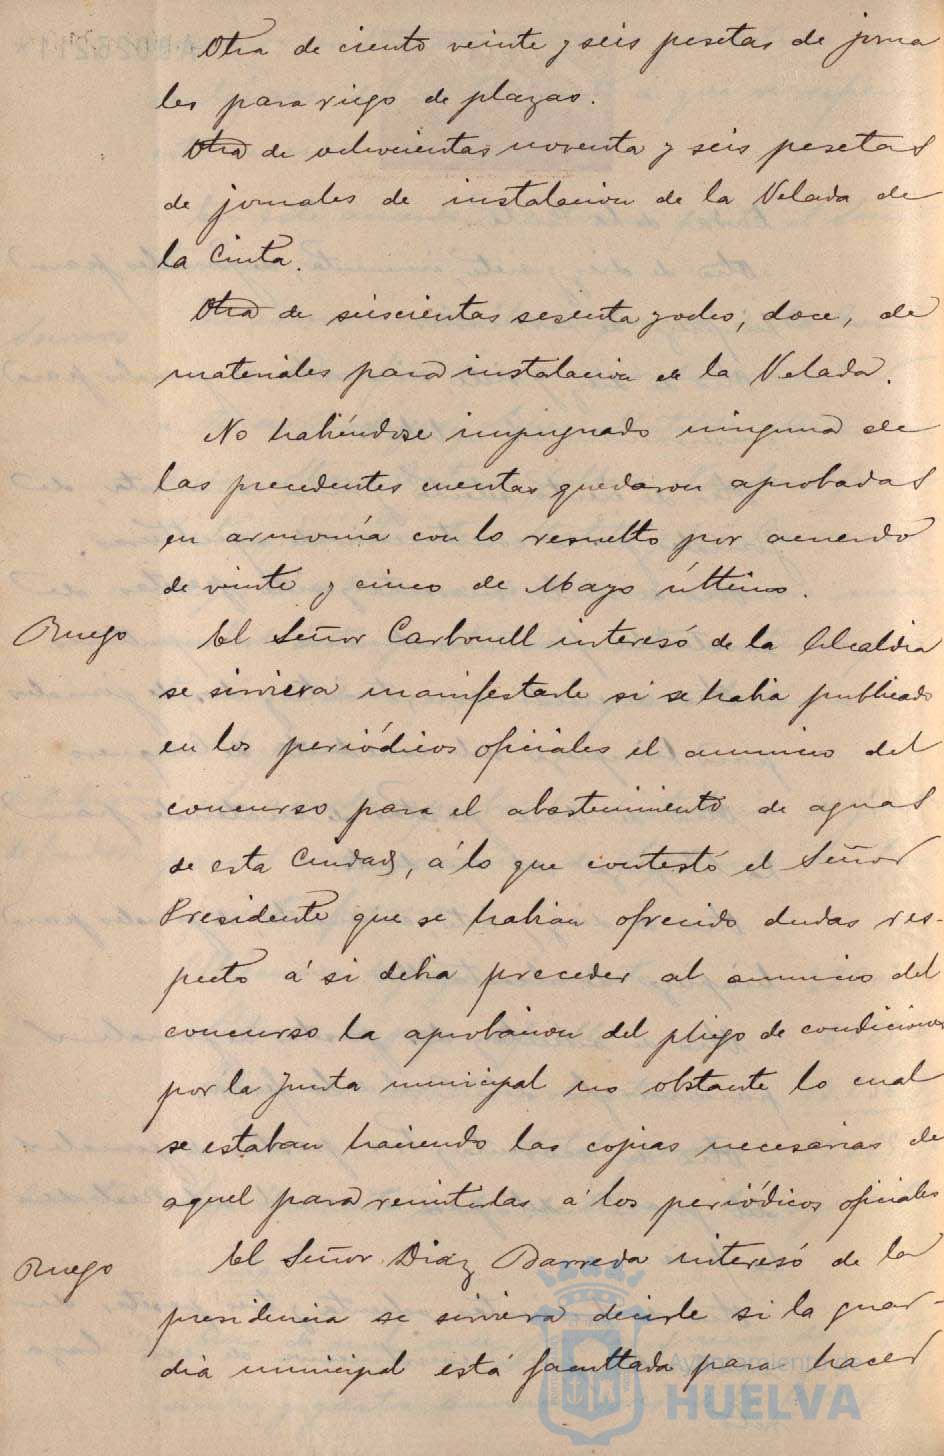 Otra de ciento veinte y seis pesetas de jorna
les para riego de plazas.
Otra de ochocientas noventa y seis pesetas
de jornales de instalacion de la Velada de
la Cinta.
Otra de seiscientas sesenta y ocho, doce, de
materiales para instalacion de la Velada.
No habiéndose impugnado ninguna de
las precedentes cuentas quedaron aprobadas
en armonía con lo resuelto por acuerdo
de veinte y cinco de Mayo último.
Ruego El Señor Carbonell interesó de la Alcaldia
se sirviera manifestarle si se habia publicado
en los periódicos oficiales el anuncio del
concurso para el abastecimiento de aguas
de esta Ciudad, á lo que contestó el Señor
Presidente que se habian ofrecido dudas res-
pecto á si debia preceder al anuncio del
concurso la aprobacion del pliego de condiciones
por la Junta municipal no obstante lo cual
se estaban haciendo las copias necesarias de
aquel para remitirlas á los periódicos oficiales
Ruego El Señor Diaz Barreda interesó de la
presidencia se sirviera decirle si la guar-
dia municipal está facultada para hacer
Ayuntamiento de
HUELVA